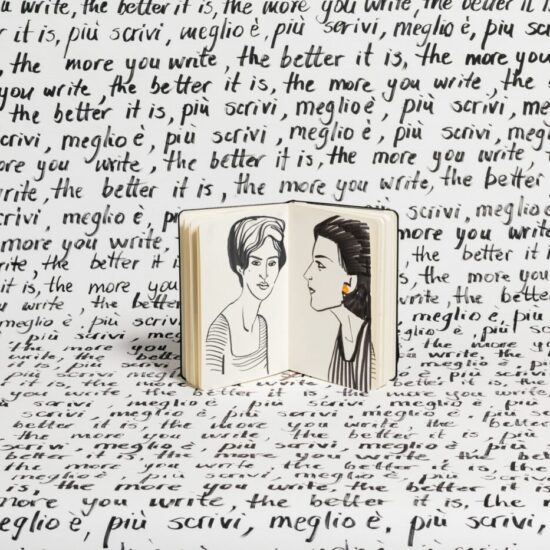 u write, the better it is, the more you write, the better it
is, più scrivi, meglio è, più scrivi, meglio è, più scrivi
, the more you write, the better it is, the more you
you write, the better it is, the more you write, the
the better it is, più scrivi, meglio è, più scrivi,
scrivi, meglio è, più scrivi, meglio è, più scrivi,
more you write, the better it is, the more you write, the
, the better it is, the more you write, the better
scrivi, meglio è, più scrivi, meglio è
more you write, the more you write, the
write, the better it is, the better it is
it is, the more you the more
write, the better better it is,
meglio è, più scrivi, meglio è, più
più scrivi the more you
write, the better
the more
scrivi, meglio è, più scrivi, meglio è, più scrivi
the more you write, the better it is, the more you write
scrivi, meglio è, più scrivi, meglio è, più scrivi
better it is, the more you write, the better it is, the
meglio è, più scrivi, meglio è, più scrivi
is, the more you write, the better it is, the more
more you write, the better it is, the m
meglio è, più scrivi, meglio è, più scrivi